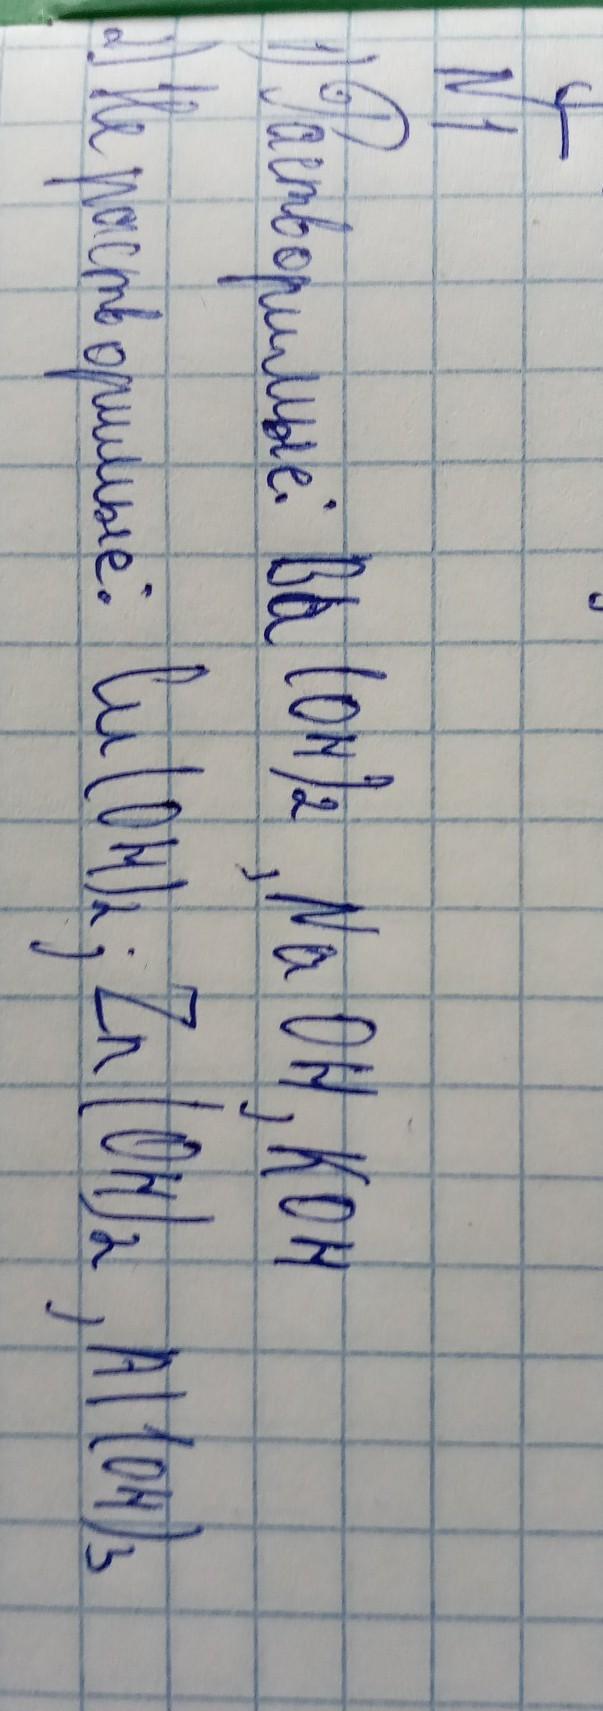 N1
1) Растворимые: Ba(OH)2, NaOH, KOH
2) Не растворимые: Cu(OH)2; Zn(OH)2, Al(OH)3